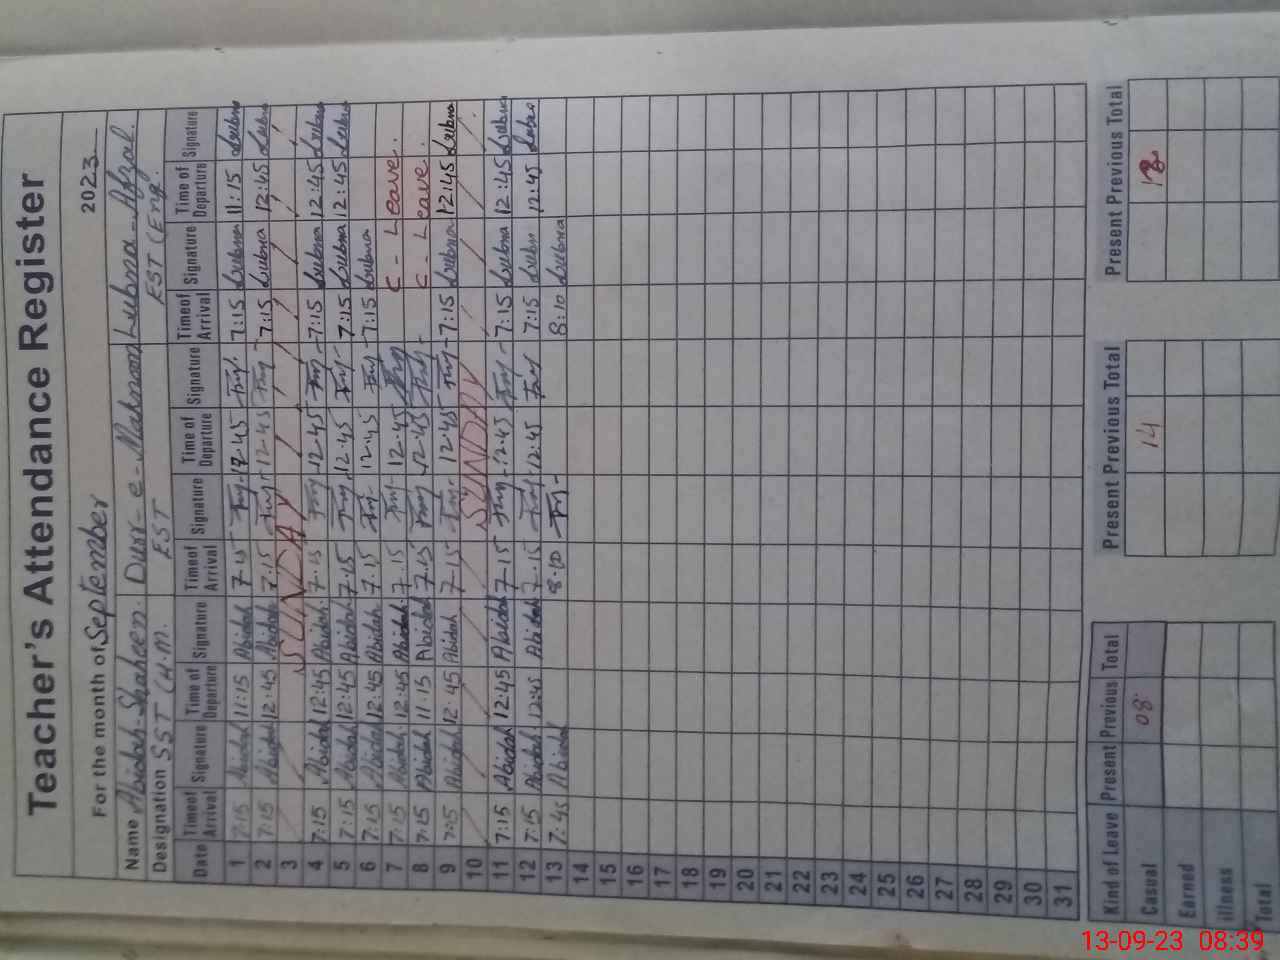 Teacher's Attendance Register
For the month of September 2023
Name Abidah Shaheen. Durr-e-Maknoon Lubna Afzal.
Designation SST (H.M. EST EST (Eng.
Date Timeof Arrival Signature Time of Departure Signature Timeof Arrival Signature Time of Departure Signature Timeof Arrival Signature Time of Departure Signature
1 7:15 Abidah 11:15 Abidah 7.15 12.45 7:15 Lubna 11:15 Lubna
2 7:15 Abidah 12:45 Abidah 7.15 12.45 7:15 Lubna 12:45 Lubna
3 SUNDAY
4 7:15 Abidah 12:45 Abidah 7.15 12.45 7:15 Lubna 12:45 Lubna
5 7:15 Abidah 12:45 Abidah 7.15 12.45 7:15 Lubna 12:45 Lubna
6 7:15 Abidah 12:45 Abidah 7.15 12.45 7:15 Lubna
7 7:15 Abidah 12:45 Abidah 7.15 12.45 C - Leave.
8 7:15 Abidah 11:15 Abidah 7.15 12.45 C - Leave.
9 7:15 Abidah 12:45 Abidah 7.15 12.45 7:15 Lubna 12:45 Lubna
10 SUNDAY
11 7:15 Abidah 12:45 Abidah 7.15 12.45 7:15 Lubna 12:45 Lubna
12 7:15 Abidah 12:45 Abidah 7.15 12.45 7:15 Lubna 12:45 Lubna
13 7:45 Abidah 8.10 8:10 Lubna
14
15
16
17
18
19
20
21
22
23
24
25
26
27
28
29
30
31
Kind of Leave Present Previous Total Present Previous Total Present Previous Total
Casual 08 14
Earned
illness
Total
13-09-23 08:39